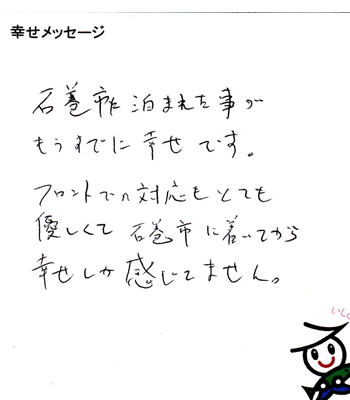 幸せメッセージ
石巻市に泊まれた事が
もうすでに幸せです。
フロントでの対応もとても
優しくて石巻市に着いてから
幸せしか感じてません。